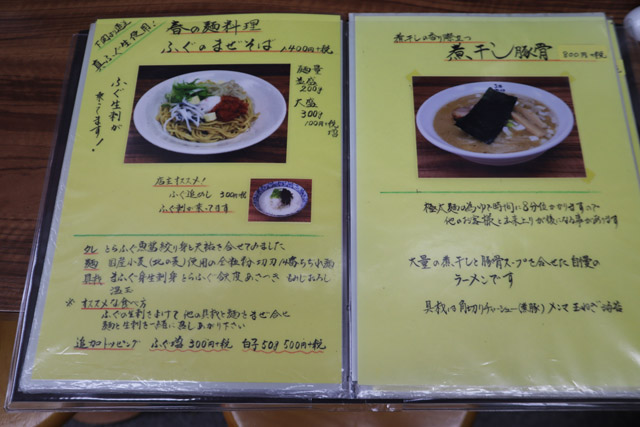 真ふぐ生使用!
春の麺料理
ふぐのまぜそば 1,400円+税
ふぐ生刺が
来てます!
麺量
並盛
200g
大盛
300g
100円+税
増
店主オススメ!
ふぐ追めし 300円+税
ふぐ刺が乗ってます
タレ とらふぐ魚醤絞り身と天然を合せてみました
麺 国産小麦(北の麦)使用の全粒粉 切刃14番もち小麺
具我 まふぐ身生刺身 とらふぐ皮 あさつき もみじおろし
温玉
※オススメな食べ方
ふぐの生刺をよけて他の具我と麺をまぜ合せ
麺と生刺を一緒に召しあがり下さい
追加トッピング ふぐ増 300円+税 白子50g 500円+税
煮干しの香り際立つ
煮干し豚骨 800円+税
極太麺の為ゆで時間に8分位かかりますので
他のお客様と出来上りが後になる事があります
大量の煮干しと豚骨スープを合せた自慢の
ラーメンです
具我は角切りチャーシュー(燻豚)メンマ 玉ねぎ 海苔